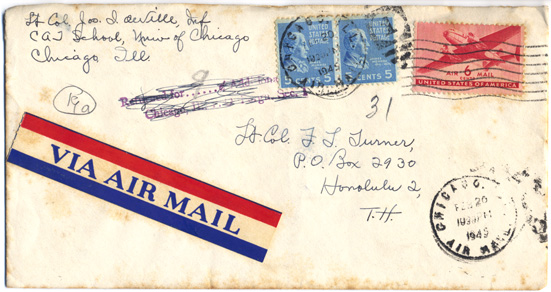 Lt. Col. Jos. I. deVille, Inf
CAT School, Univ of Chicago
Chicago, Ill.
UNITED STATES POSTAGE
UNITED STATES POSTAGE
5 CENTS 5
AIR 6 MAIL
CENTS
UNITED STATES OF AMERICA
Returned for
Chicago, Ill.
31
Lt. Col. F. T. Turner,
P.O. Box 2930
Honolulu 2,
T.H.
VIA AIR MAIL
CHICAGO,
FEB 20
1945
AIR MAIL